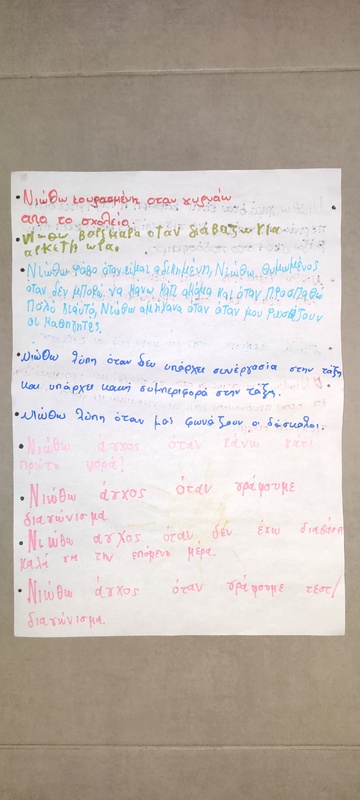 • Νιώθω κουρασμένη οταν γυρνάω
απο το σχολείο.
• Νιωθω βαρεμαρα οταν διαβαζω για
αρκετη ωρα.
• Νιώθω φόβο όταν είμαι αδικημένη, Νιώθω θυμωμένος
όταν δεν μπορώ να κάνω κάτι ακόμα και όταν προσπαθώ
πολύ γιαυτό, Νιώθω αμήχανα όταν όταν μου φωνάζουν
οι καθηγητές.
• Νιώθω λύπη όταν δεν υπάρχει συνέργασία στην τάξη
και υπάρχει κακή συμπεριφορά στην τάξη.
• Νιώθω λύπη όταν μας φωνάζουν οι δάσκαλοι.
• Νιώθω άγχος όταν κάνω κάτι
πρώτη φορά!
• Νιώθω άγχος όταν γράφουμε
διαγώνισμα
• Νιώθω αγχος όταν δεν έχω διαβάσει
καλά για την επόμενη μέρα.
• Νιώθω άγχος όταν γράφουμε τεστ/
διαγώνισμα.